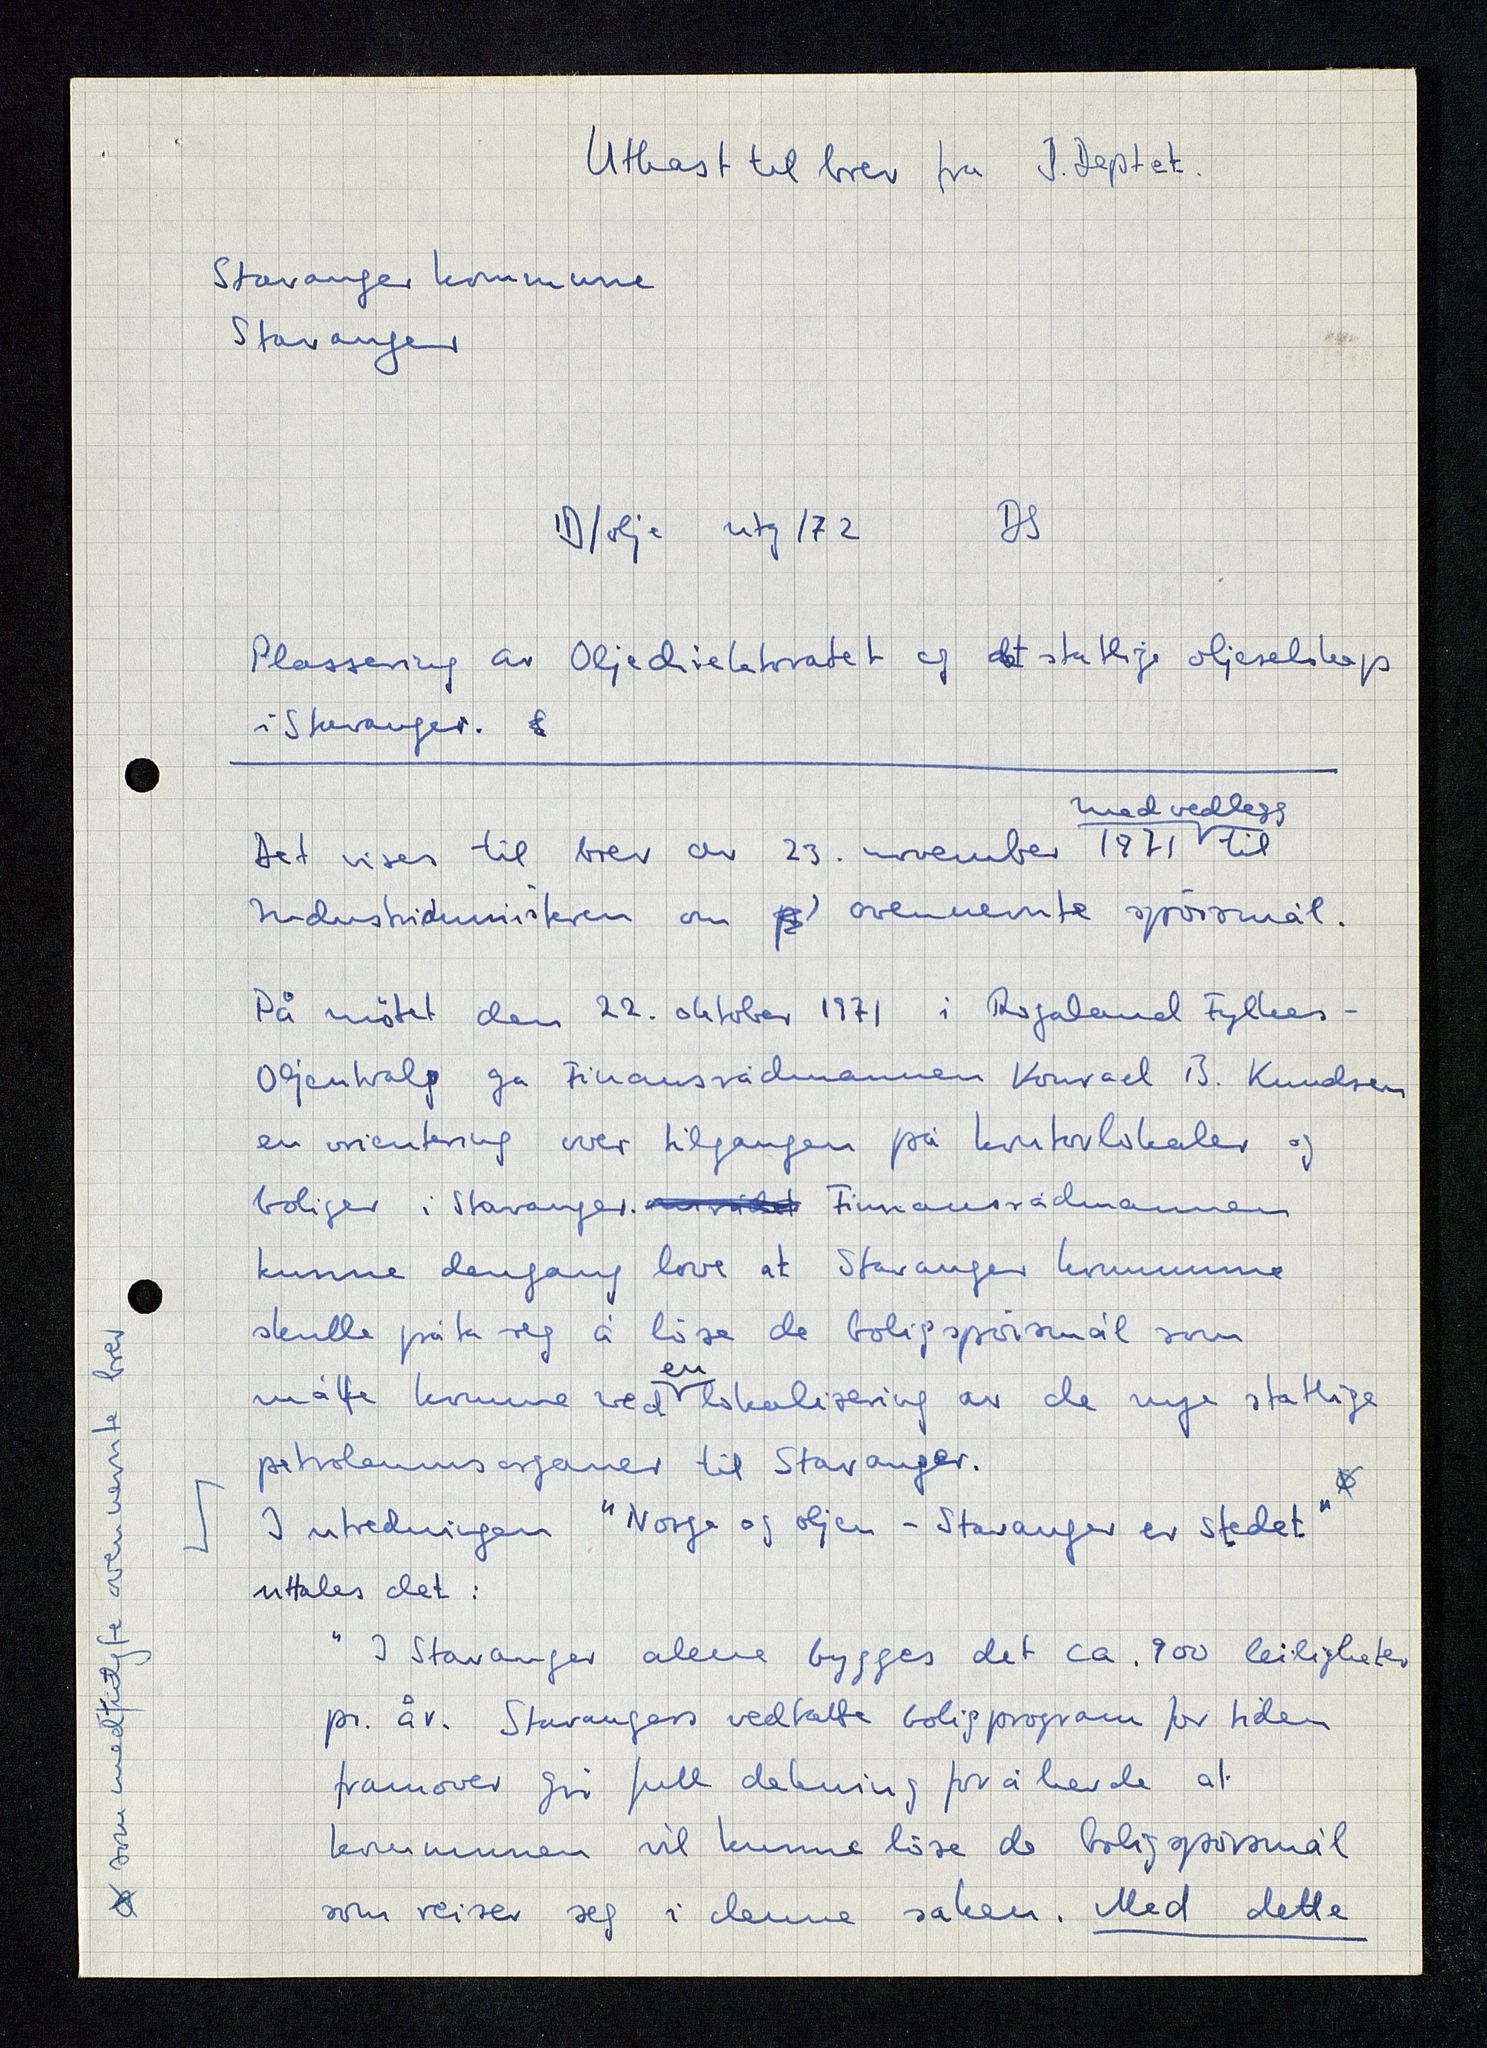 Utkast til brev fra I. Deptet.
Stavanger kommune
Stavanger
ID/olje utg /72 DS
Plassering av Oljedirektoratet og det statlige oljeselskap
i Stavanger.
med vedlegg
Det vises til brev av 23. november 1971 til
Industriministeren om ovennevnte spörsmål.
På mötet den 22. oktober 1971 i Rogaland Fylkes-
Oljeutvalg ga Finansrådmannen Konrad B. Knudsen
en orientering over tilgangen på kontorlokaler og
boliger i Stavanger. Finnansrådmannen
kunne dengang love at Stavanger kommune
skulle påta seg å löse de boligspörsmål som
en
måtte komme ved lokalisering av de nye statlige
petroleumsorganer til Stavanger.
I utredningen "Norge og oljen - Stavanger er stedet"
uttales det:
" I Stavanger alene bygges det ca. 900 leiligheter
pr. år. Stavangers vedtatte boligprogram for tiden
framover gir full dekning for å hevde at
kommunen vil kunne löse de boligspörsmål
som reiser seg i denne saken. Med dette
som medfulgte ovennevnte brev